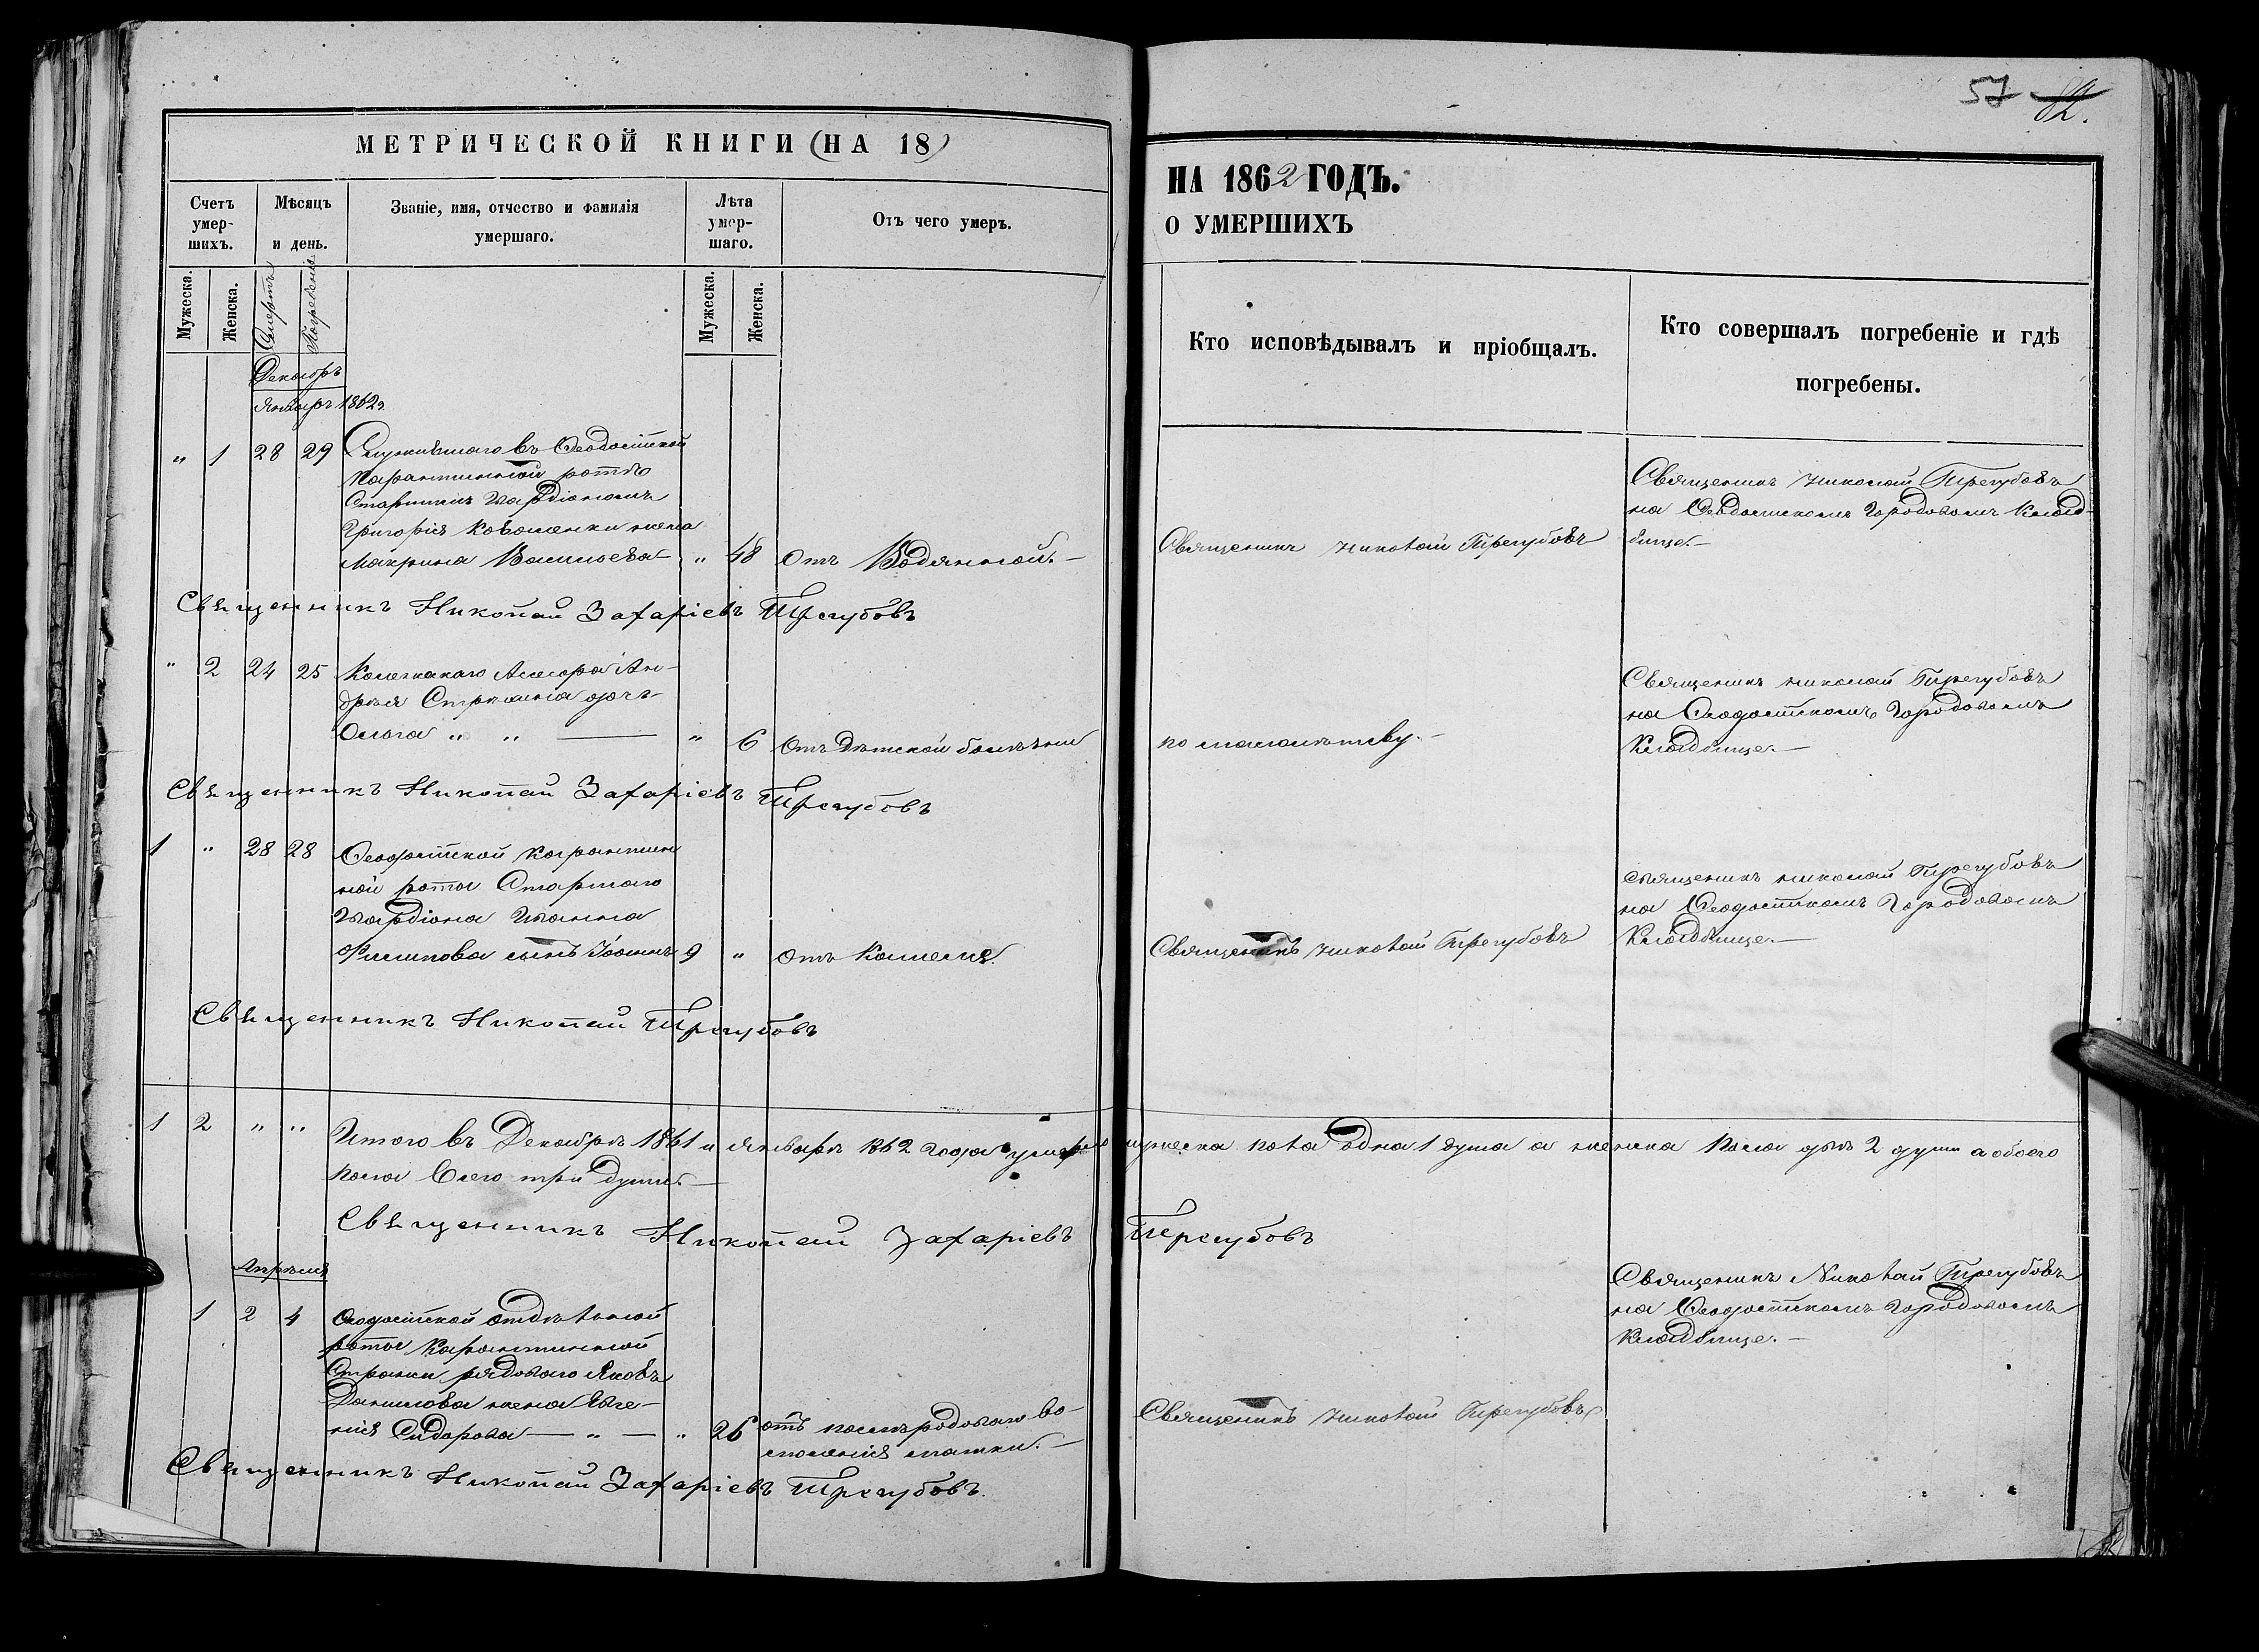 57 82.
МЕТРИЧЕСКОЙ КНИГИ (НА 18)
НА 1862 ГОДЪ.
О УМЕРШИХЪ
Счетъ умер-шихъ.
Мѣсяцъ и день.
Званіе, имя, отчество и фамилія умершаго.
Лѣта умер-шаго.
Отъ чего умеръ.
Кто исповѣдывалъ и пріобщалъ.
Кто совершалъ погребеніе и гдѣ погребены.
Мужеска.
Женска.
Смерть
Погребенія
Мужеска.
Женска.
Декабрь
Январь 1862г.
" 1 28 29 Служившаго въ Ѳеодосійской
Карантинной ротѣ
Старшимъ Гвардіономъ
Григорія Коваленки жена
Макрина Васильева " 48 Отъ Водянной.
Священникъ Николай Трегубовъ
Священникъ Николай Трегубовъ
на Ѳеодосійскомъ Городовомъ Клад-
бище.
Священникъ Николай Захаріевъ Трегубовъ
" 2 24 25 Колежскаго Асесора Ан-
дрея Стрынина дочь
Ольга " " " 6 Отъ Дѣтской болѣзни
по малолѣтству.
Священникъ Николай Трегубовъ
на Ѳеодосійскомъ Городовомъ
Кладбище.
Священникъ Николай Захаріевъ Трегубовъ
1 " 28 28 Ѳеодосійской Карантин
ной роты Старшаго
Гвардіона Иванна
Филипова сынъ Іоаннъ 9 " Отъ Кашеля.
Священникъ Николай Трегубовъ
Священникъ Николай Трегубовъ
на Ѳеодосійскомъ Городовомъ
Кладбище.
Священникъ Николай Трегубовъ
1 2 " " Итого въ Декабрѣ 1861 и Январѣ 1862 года умерло мужеска пола одна 1 душа а женска пола двѣ 2 души а обоего
пола Всего три души.
Священникъ Николай Захаріевъ Трегубовъ
Апрѣля
1 2 4 Ѳеодосійской Отдѣльной
роты Карантинной
Стражи рядоваго Яковъ
Данилова жена Евге-
нія Сидорова " " 26 отъ послѣродоваго во-
спаленія матки.
Священникъ Николай Трегубовъ
Священникъ Николай Трегубовъ
на Ѳеодосійскомъ Городовомъ
Кладбище.
Священникъ Николай Захаріевъ Трегубовъ.